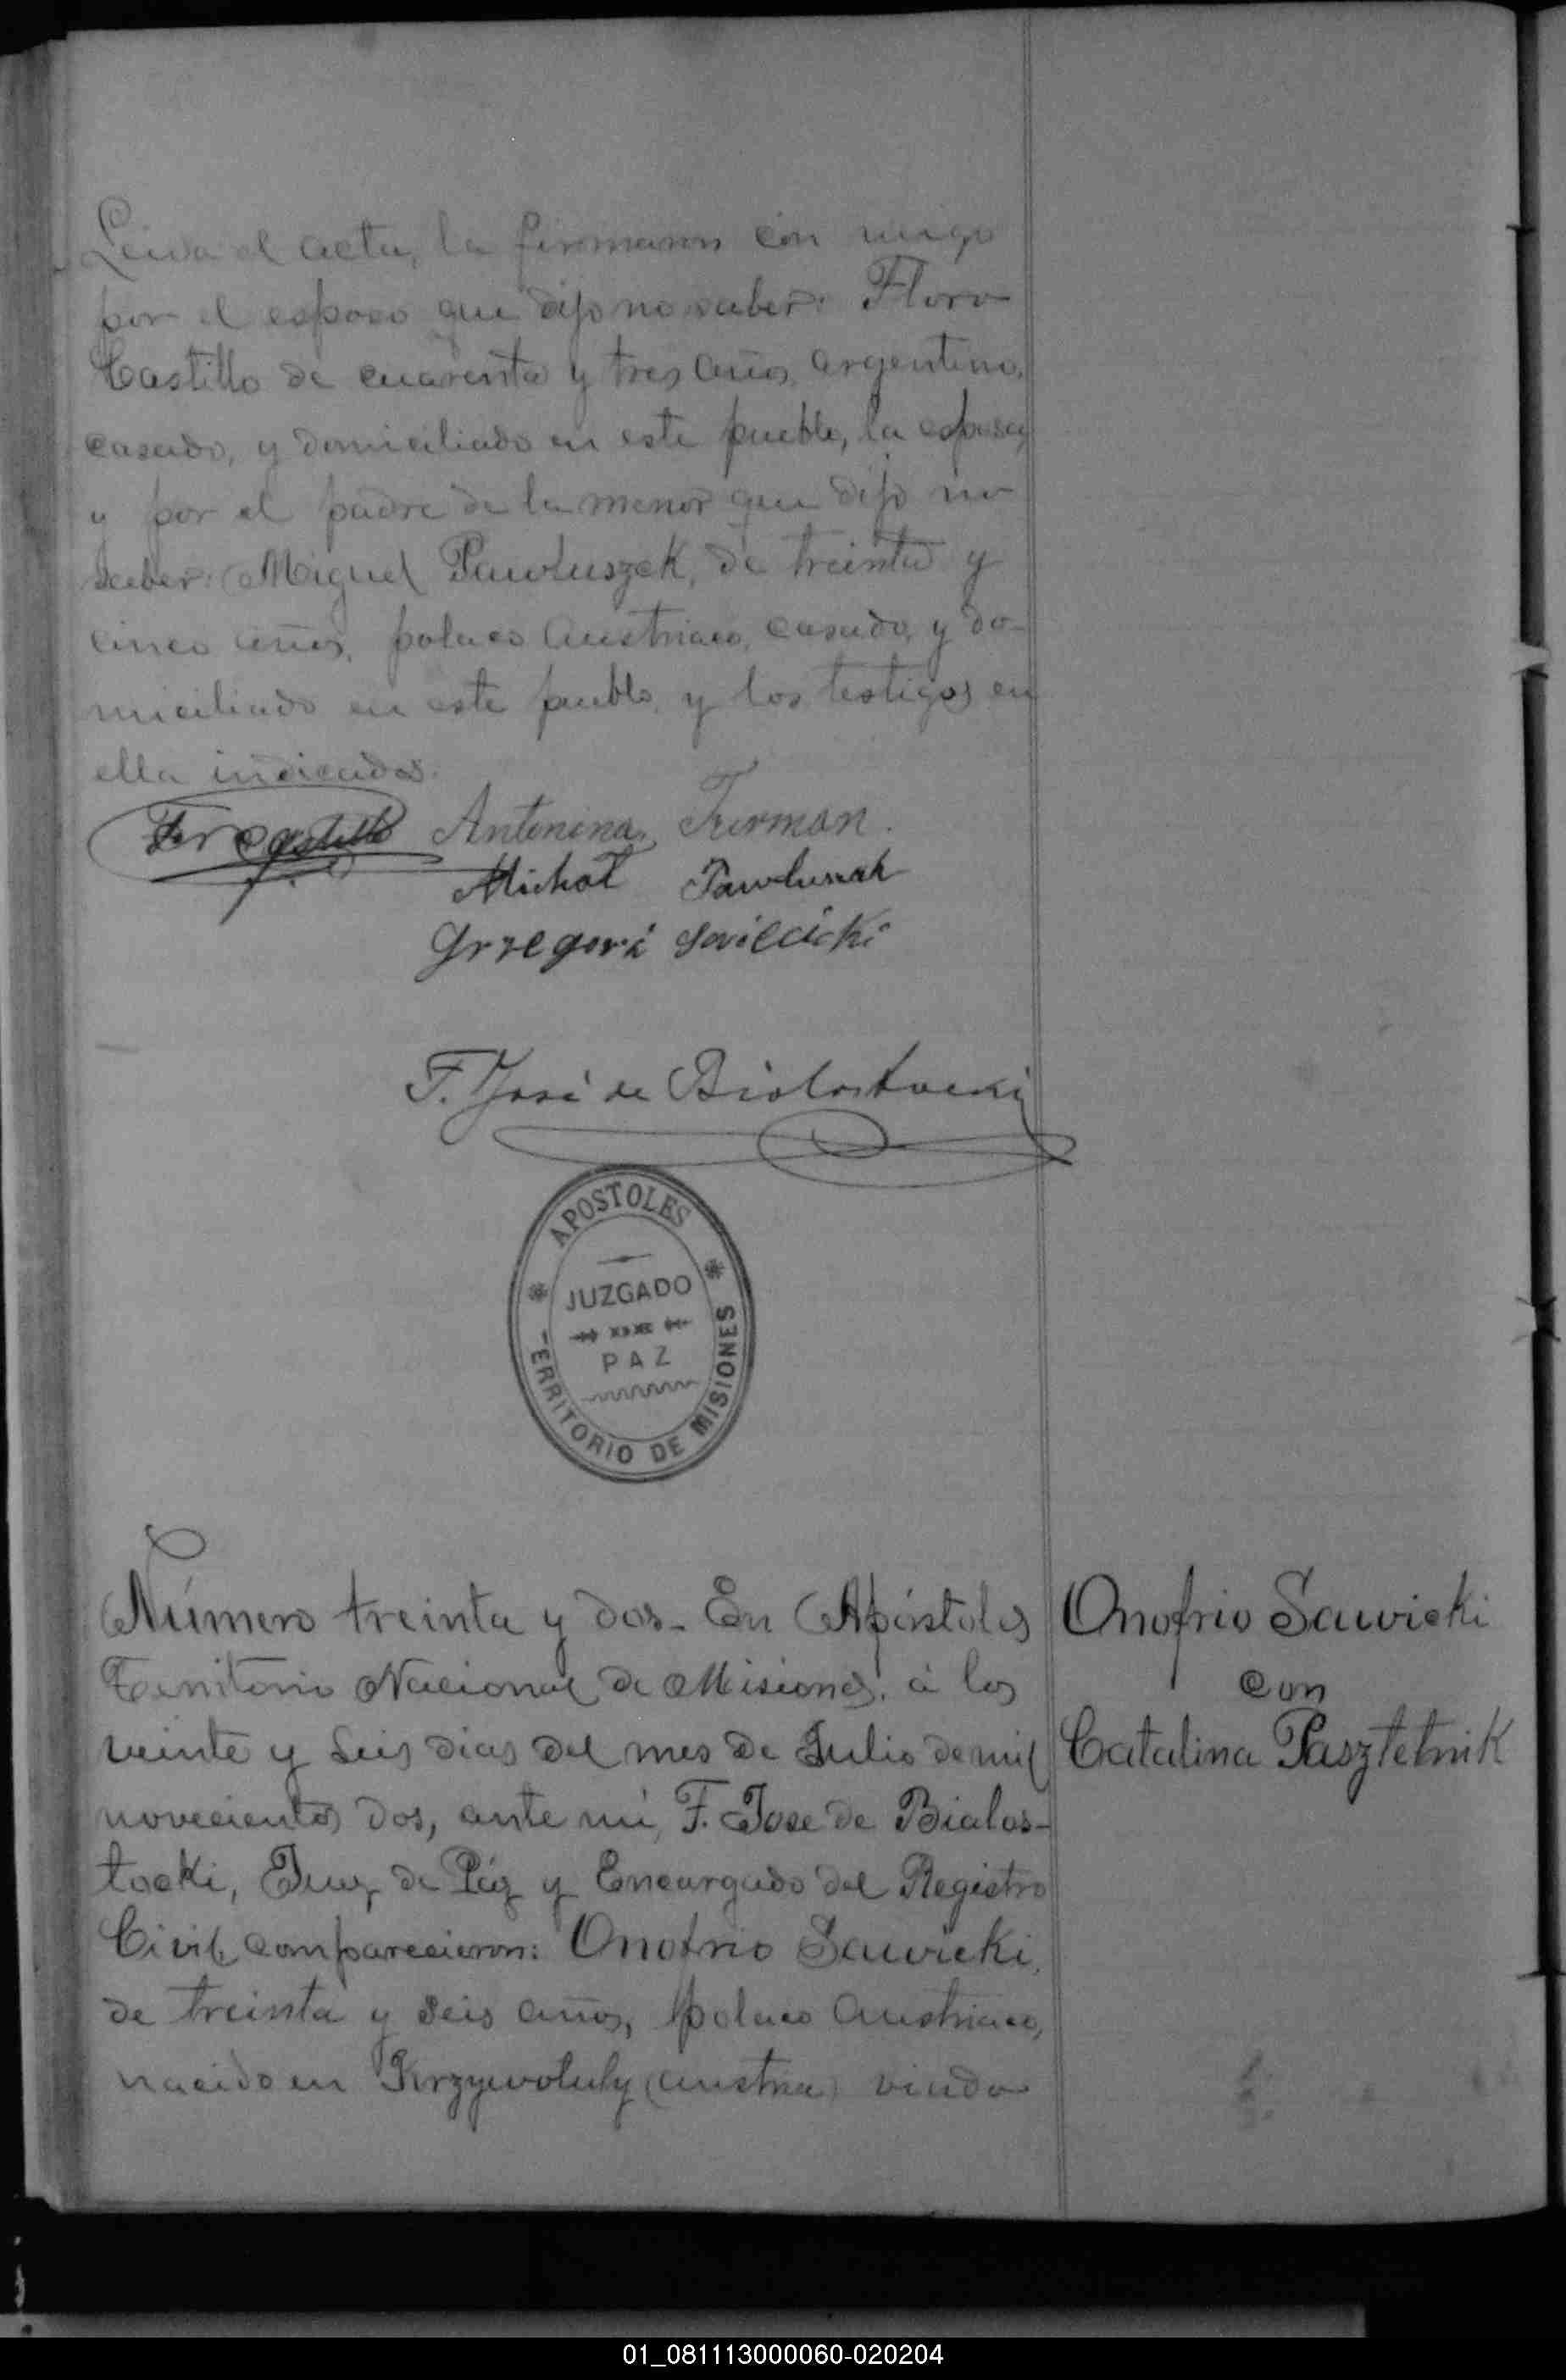 Leida el acta, la firmaron con migo
por el esposo que dijo no saber: Floro
Castillo de cuarenta y tres años, argentino,
casado, y domiciliado en este pueblo, la esposa,
y por el padre de la menor que dijo no
saber: Miguel Pawluszek, de treinta y
cinco años, polaco austriaco, casado, y do-
miciliado en este pueblo, y los testigos en
ella indicados.
Castillo Antonina Furman.
Michał Pawluszek
Grzegorz
F. José de Bialostocki
APOSTOLES
JUZGADO
PAZ
TERRITORIO DE MISIONES
Número treinta y dos- En Apóstoles
Territorio Nacional de Misiones, á los
veinte y seis dias del mes de Julio de mil
novecientos dos, ante mi, F. Jose de Bialos-
tocki, Juez de Páz y Encargado del Registro
Civil, comparecieron: Onofrio Sawicki,
de treinta y seis años, polaco austriaco,
nacido en Krzywotuly (Austria) viudo
Onofrio Sawicki
con
Catalina Pasztetnik
01_081113000060-020204